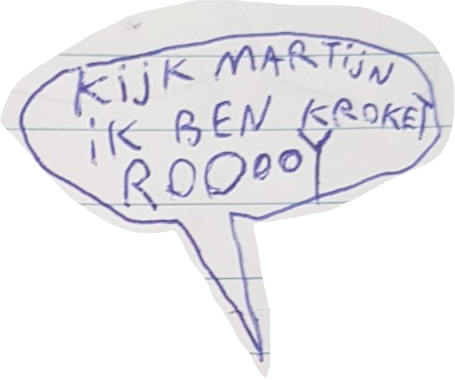 KIJK MARTIJN
IK BEN KROKET
ROOOOY